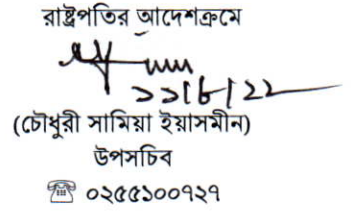 রাষ্ট্রপতির আদেশক্রমে
(চৌধুরী সামিয়া ইয়াসমীন)
উপসচিব
☎ ০২৫৫১০০৭২৭